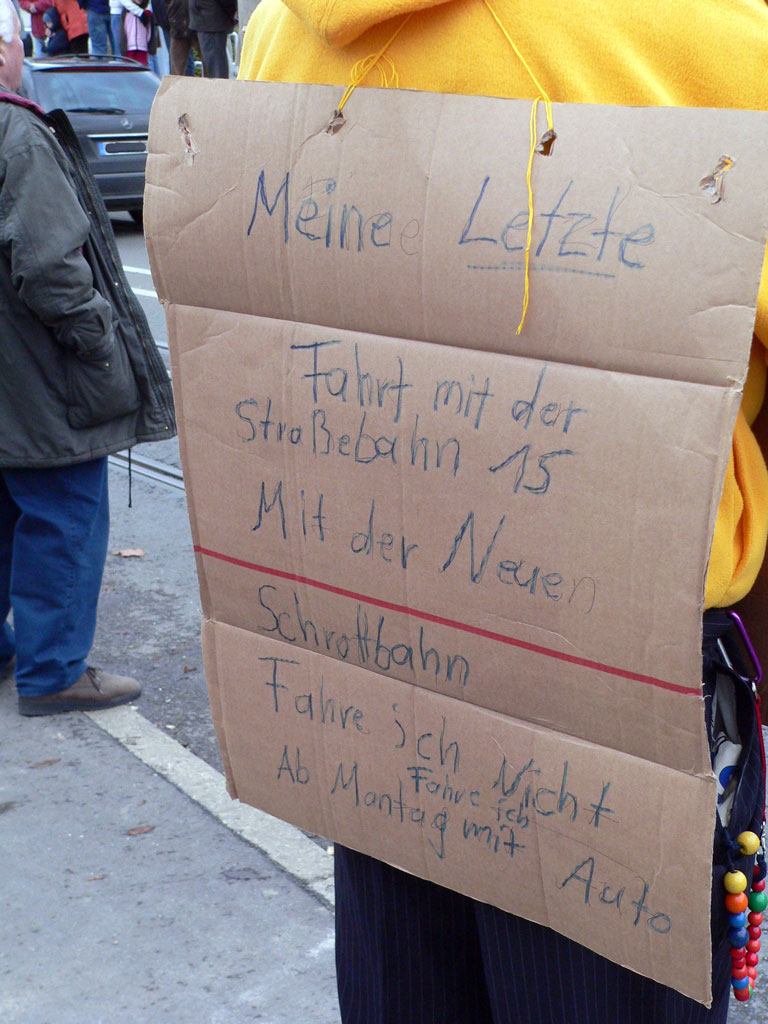 Meine Letzte
Fahrt mit der
Straßebahn 15
Mit der Neuen
Schrottbahn
Fahre ich Nicht
Ab Montag Fahre ich mit Auto